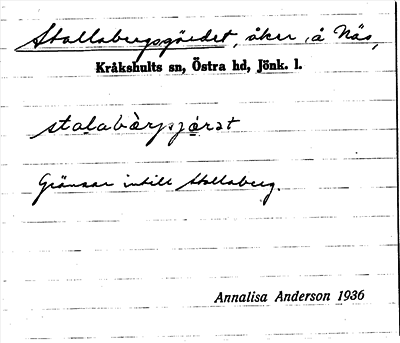 Stallabergsgärdet, åker, å Näs,
Kråkshults sn, Östra hd, Jönk. l.
stalabàrjsjǻrət
Gränsar intill Stallaberg.
Annalisa Anderson 1936